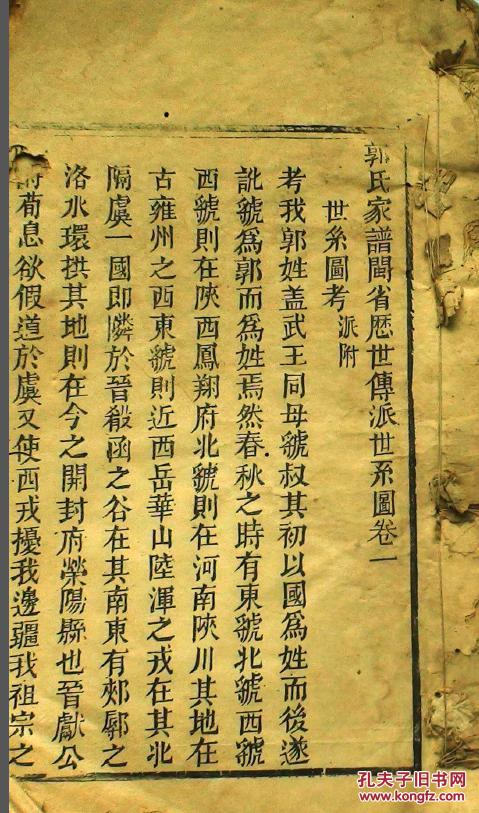 郭氏家譜閩省歷世傳派世系圖卷一
世系圖考派附
考我郭姓盖武王同母虢叔其初以國爲姓而後遂
訛虢爲郭而爲姓焉然春秋之時有東虢北虢西虢
西虢則在陝西鳳翔府北虢則在河南陝川其地在
古雍州之西東虢則近西岳華山陸渾之戎在其北
隔虞一國即隣於晉殽函之谷在其南東有郟鄏之
洛水環拱其地則在今之開封府滎陽縣也晉獻公
荀息欲假道於虞又使西戎擾我邊疆我祖宗之
孔夫子旧书网
www.kongfz.com